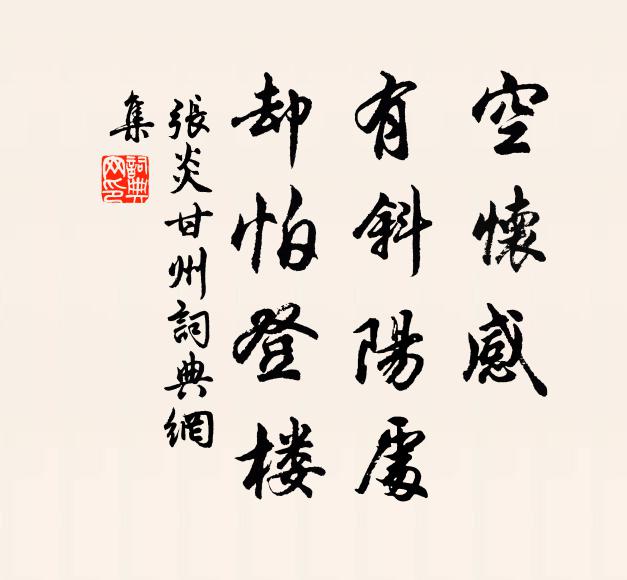 空懷感
有斜陽處
却怕登楼
張炎甘州詞典網
集
詞典网印